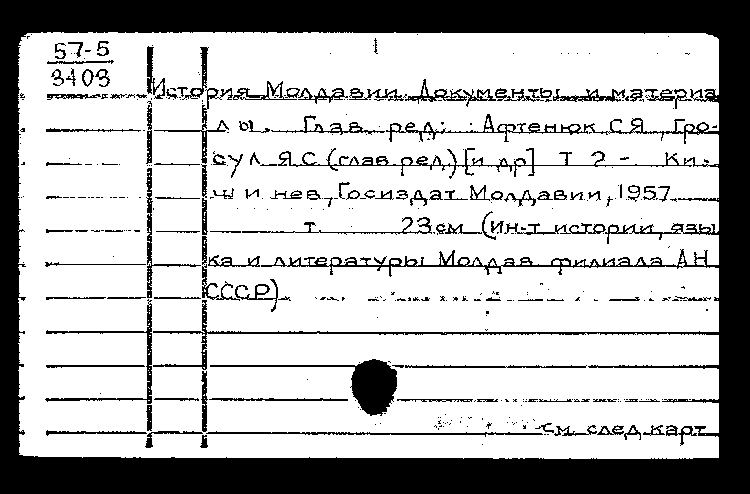 57-5
3403
История Молдавии. Документы и материа
лы. Глав. ред.: Афтенюк С Я, Гро-
сул Я С (глав. ред.) [и др] Т 2 - Ки-
шинев, Госиздат Молдавии, 1957
т. 23см (Ин-т истории, язы
ка и литературы Молдав филиала АН
СССР)
См. след карт